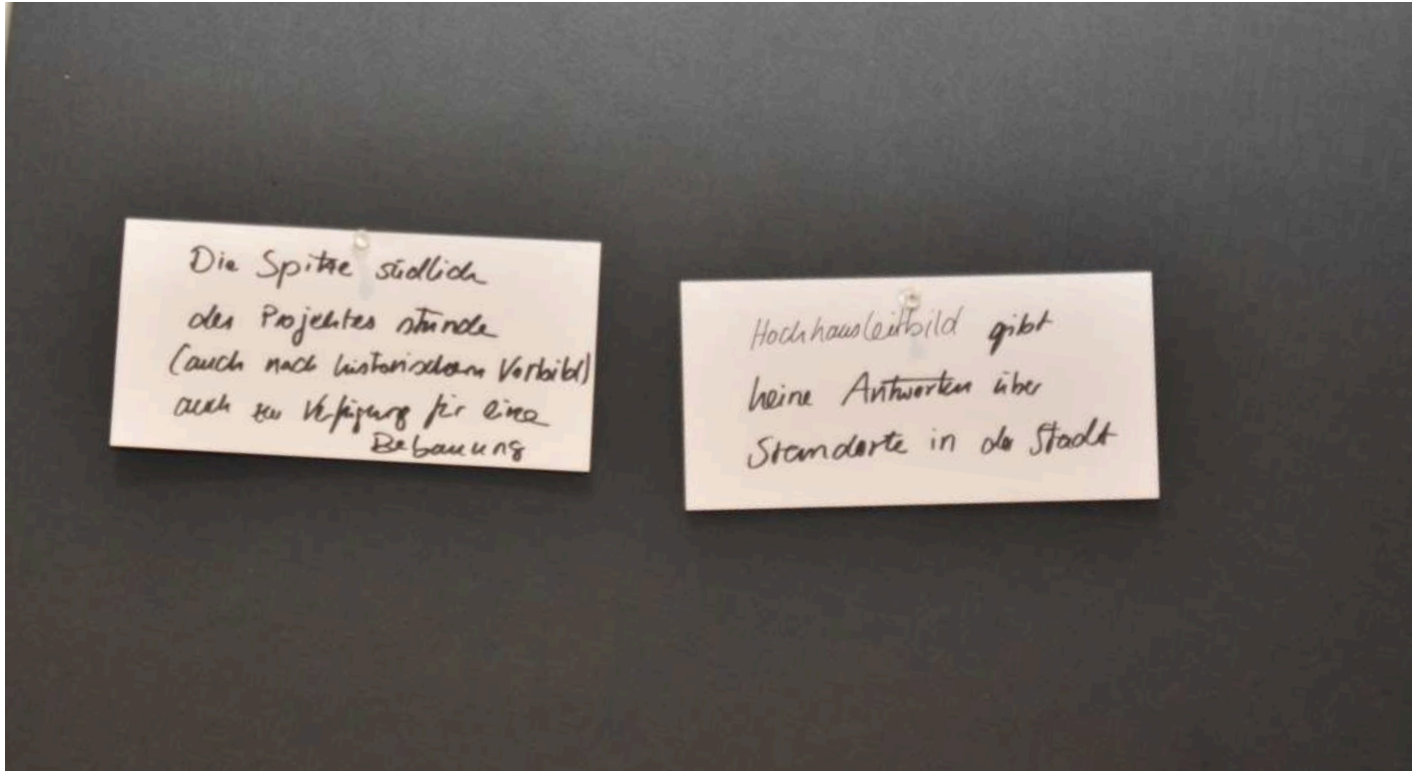 Die Spitze südlich
des Projektes stünde
(auch nach historischem Vorbild)
auch zur Verfügung für eine
Bebauung
Hochhausleitbild gibt
keine Antworten über
Standorte in der Stadt